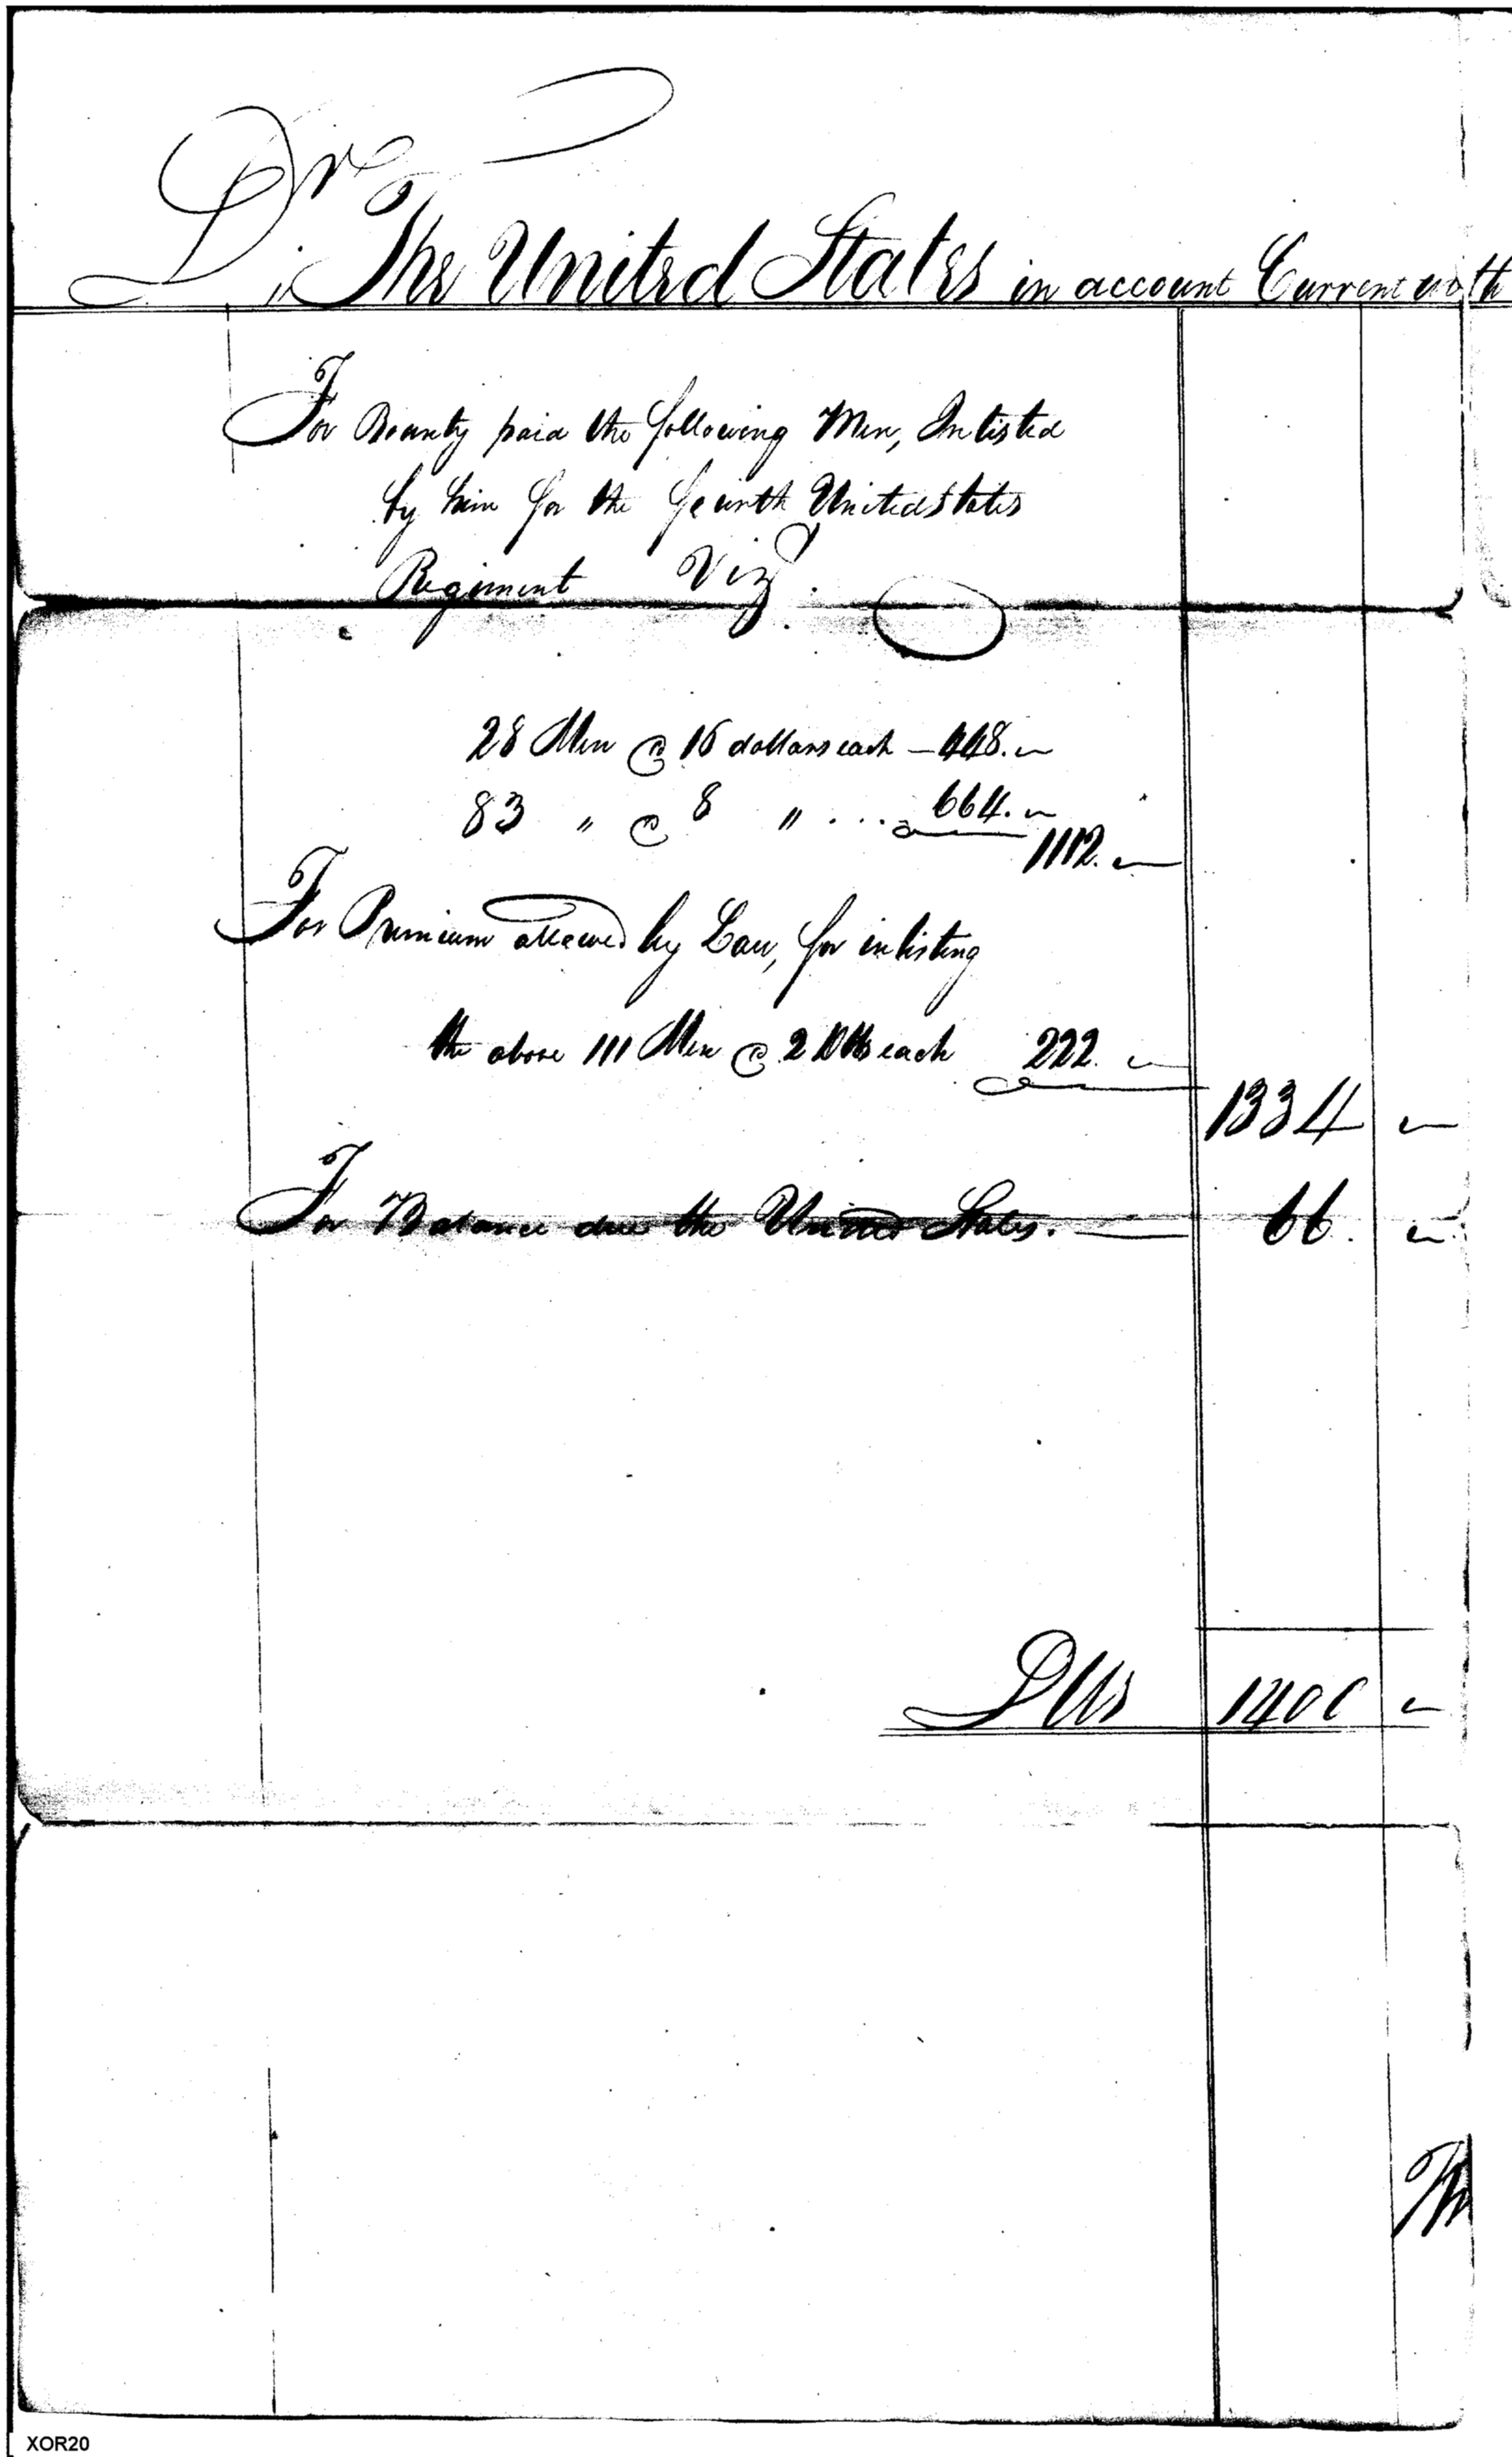 Dr
The United States in account Current with
For Bounty paid the following Men, Inlisted
by him for the fourth United States
Regiment Vizt.
28 Men @ 16 dollars each — 448. —
83 " @ 8 " ... 664. —
1112. —
For Premium allowed by Law, for inlisting
the above 111 Men @ 2 Dlls each 222. —
1334 —
For Balance due the United States. — 66. —
Dlls 1400 —
XOR20